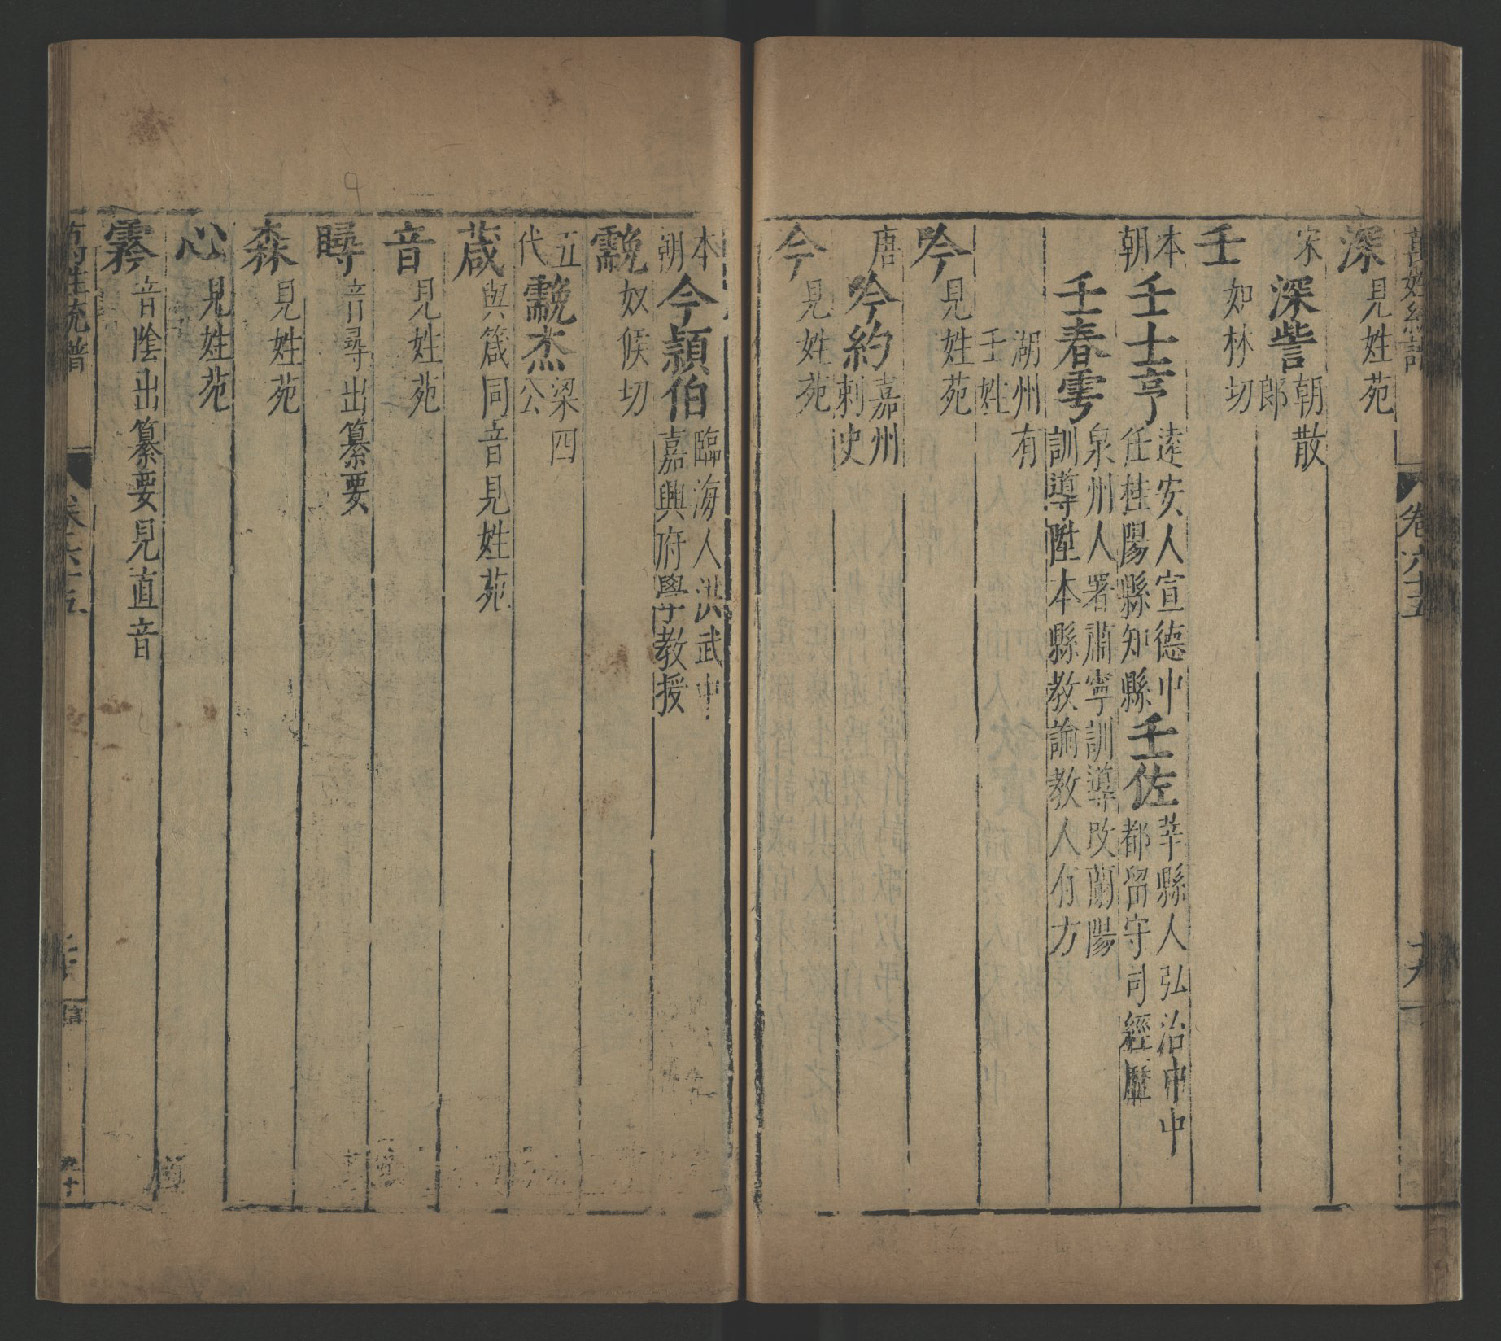 萬姓統譜 卷六十五 十九
深 見姓苑
宋 深訾 朝散郎
壬 如林切
本朝 壬士亨 遠安人宣德中任桂陽縣知縣 壬佐 莘縣人弘治中中都留守司經歷
壬春雩 泉州人署肅寧訓導改蘭陽訓導陞本縣教諭教人有方
湖州有壬姓
吟 見姓苑
唐 吟約 嘉州刺史
今 見姓苑
本朝 今穎伯 臨海人洪武中嘉興府學教授
䨲 奴候切
五代 䨲杰 梁四公
葴 與箴同音見姓苑
音 見姓苑
䏉 音尋出纂要
森 見姓苑
心 見姓苑
霧 音陰出纂要見直音
萬姓統譜 卷六十五